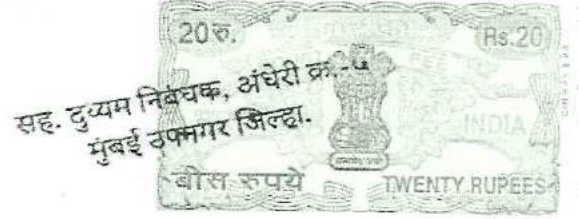 20रु. Rs.20
सह. दुय्यम निबंधक, अंधेरी क्र.-५
मुंबई उपनगर जिल्हा.
INDIA
बीस रुपये TWENTY RUPEES